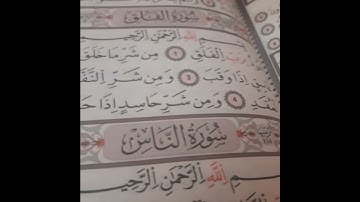 سُورَةُ الْفَلَقِ
ـمِ اللَّهِ الرَّحْمَٰنِ الرَّحِيـ
بِرَبِّ الْفَلَقِ ١ مِن شَرِّ مَا خَلَقَ
إِذَا وَقَبَ ٣ وَمِن شَرِّ النَّفَّـ
ـعُقَدِ ٤ وَمِن شَرِّ حَاسِدٍ إِذَا حَـ
سُورَةُ النَّاسِ
ـمِ اللَّهِ الرَّحْمَٰنِ الرَّحِيـ